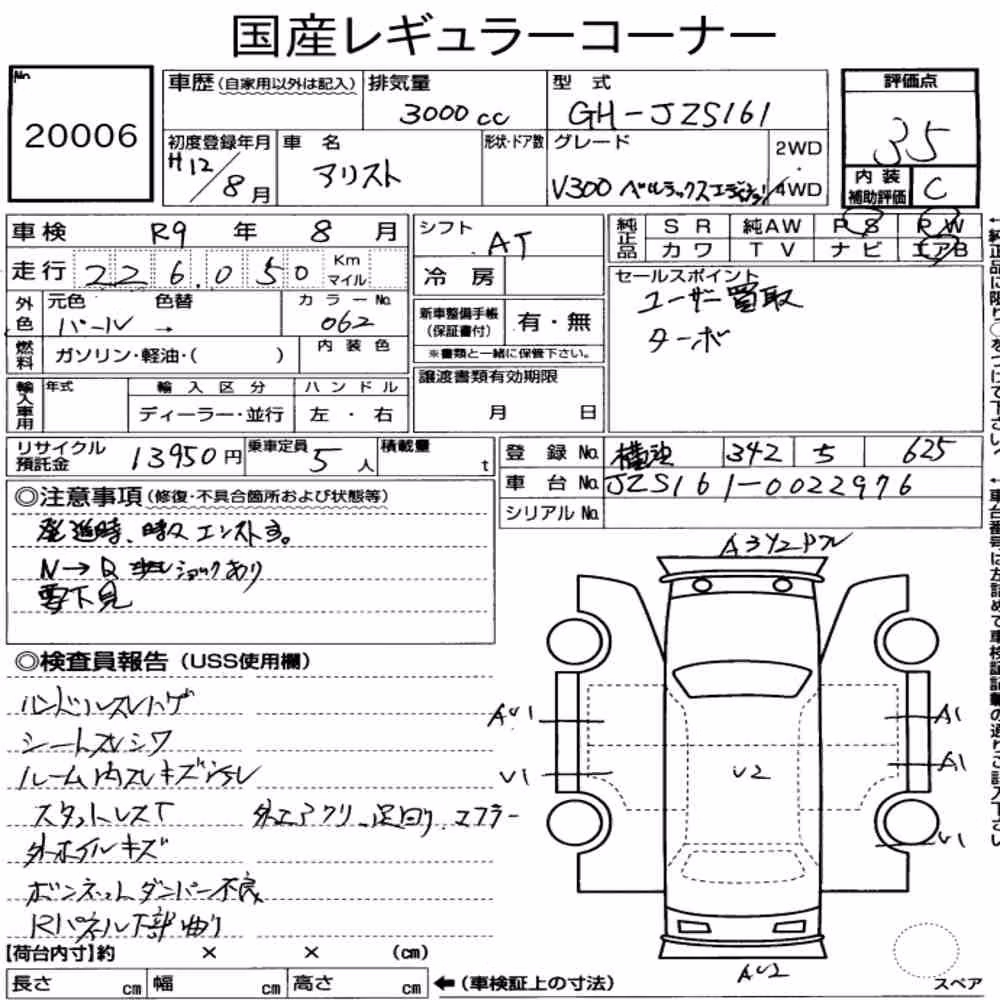 国産レギュラーコーナー
No.
20006
車歴(自家用以外は記入) 排気量 3000cc 型式 GH-JZS161 評価点 35
初度登録年月 H12/8月 車名 アリスト 形状・ドア数 グレード V300 ベルテックスエディション 2WD・4WD
内装補助評価 C
車検 R9年8月
走行 226,050 Km マイル
外色 元色 パール 色替 → カラーNo. 062
燃料 ガソリン・軽油・( ) 内装色
輸入車用 年式 輸入区分 ディーラー・並行 ハンドル 左・右
シフト AT
冷房
新車整備手帳(保証書付) 有・無
※書類と一緒に保管下さい。
譲渡書類有効期限 月 日
純正品 SR 純AW PS PW
カワ TV ナビ エアB
セールスポイント
ユーザー買取
ターボ
←純正品に限り○をつけて下さい。
リサイクル預託金 13950円 乗車定員 5人 積載量 t
登録No. 横浜 342 ち 625
車台No. JZS161-0022976
シリアルNo.
←車台番号は左詰めで車検証記載の通りご記入下さい。
◎注意事項(修復・不具合箇所および状態等)
発進時、時々エンストす。
N→R ショックあり
要下見
◎検査員報告(USS使用欄)
ハンドルスレハゲ
シートスレシワ
ルーム内スレキズ汚レ
スタットレスT 外エアクリ、足回り、マフラー
外ホイルキズ
ボンネットダンパー不良
Rパネル下部曲り
A3Y2Pフレ
AU1
U1
U2
A1
A1
U1
AU2
【荷台内寸】約 × × (cm)
長さ cm 幅 cm 高さ cm ←(車検証上の寸法)
スペア